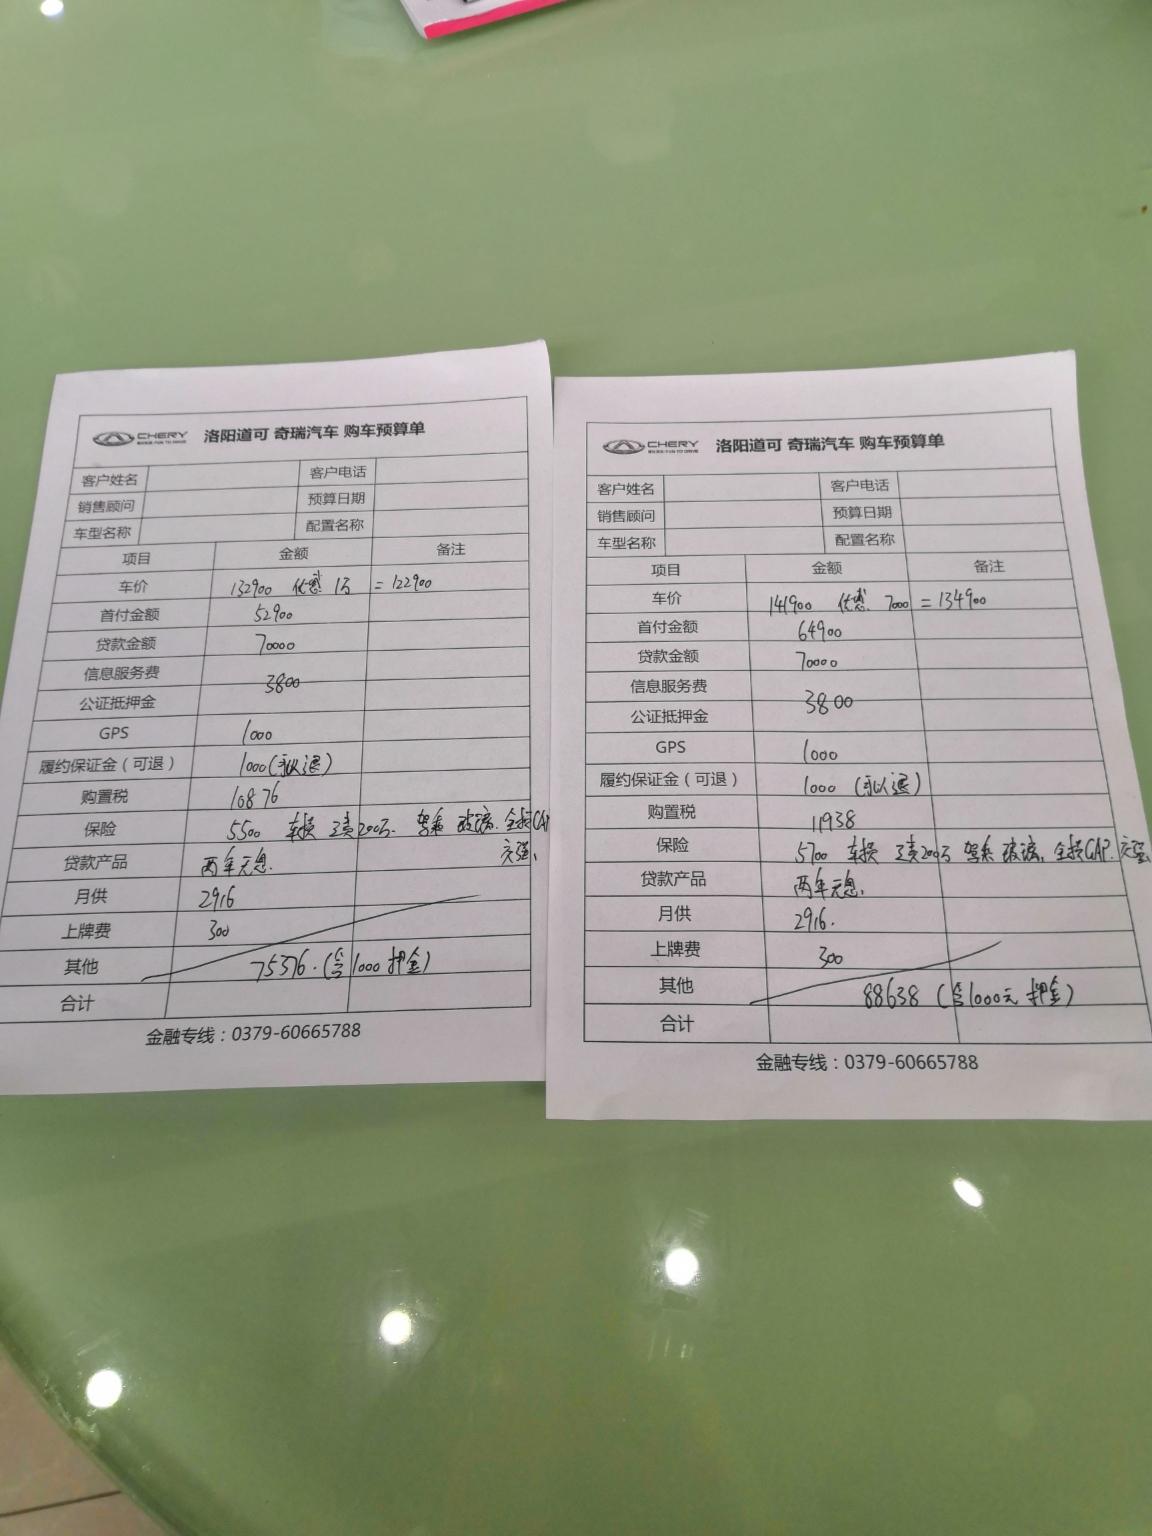 CHERY 洛阳道可 奇瑞汽车 购车预算单
客户姓名 客户电话
销售顾问 预算日期
车型名称 配置名称
项目 金额 备注
车价 132900 优惠 1万 = 122900
首付金额 52900
贷款金额 70000
信息服务费 3800
公证抵押金
GPS 1000
履约保证金（可退） 1000(可以退)
购置税 10876
保险 5500 车损 三责200万. 驾乘 玻璃. 全损GAP
交强、
贷款产品 两年无息.
月供 2916
上牌费 300
其他 75376.(含1000押金)
合计
金融专线：0379-60665788
CHERY 洛阳道可 奇瑞汽车 购车预算单
客户姓名 客户电话
销售顾问 预算日期
车型名称 配置名称
项目 金额 备注
车价 141900 优惠 7000 = 134900
首付金额 64900
贷款金额 70000
信息服务费 3800
公证抵押金
GPS 1000
履约保证金（可退） 1000 (可以退)
购置税 11938
保险 5700 车损 三责200万 驾乘 玻璃. 全损GAP. 交强
贷款产品 两年无息.
月供 2916.
上牌费 300
其他 88638 (含1000元 押金)
合计
金融专线：0379-60665788